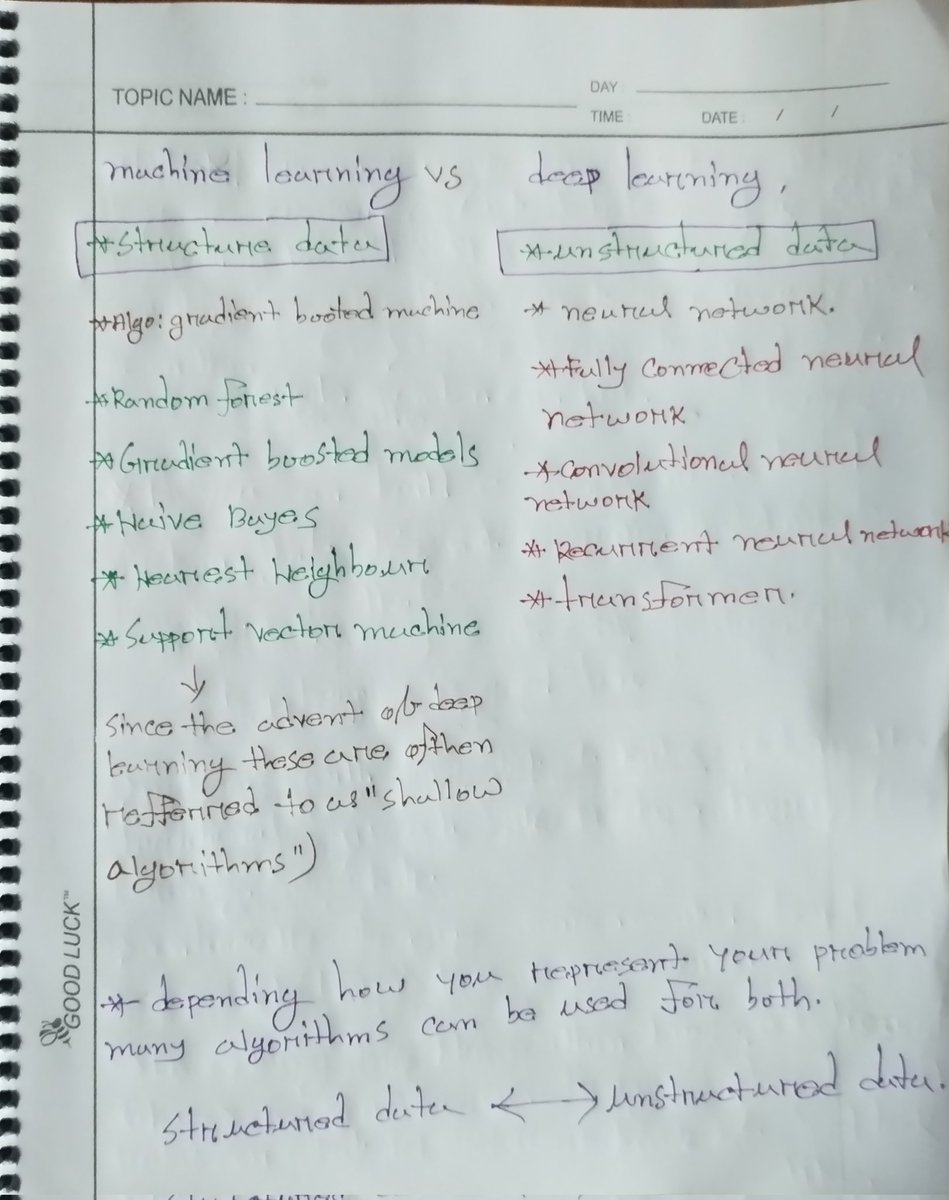 TOPIC NAME :
DAY
TIME
DATE : / /
machine learning vs deep learning,
*Structure data
*unstructured data
*Algo: gradient booted machine
* neural network.
*Fully Connected neural
network
*Random forest
*Gradient boosted models
*Convolutional neural
network
*Naive Bayes
*Recurrent neural network
*Nearest Neighbour
*transformer.
*Support vector machine
↓
Since the advent of deep
learning these are ofthen
refferred to as "shallow
algorithms")
GOOD LUCK™
* depending how you represent your problem
many algorithms can be used for both.
structured data ⟷ unstructured data.